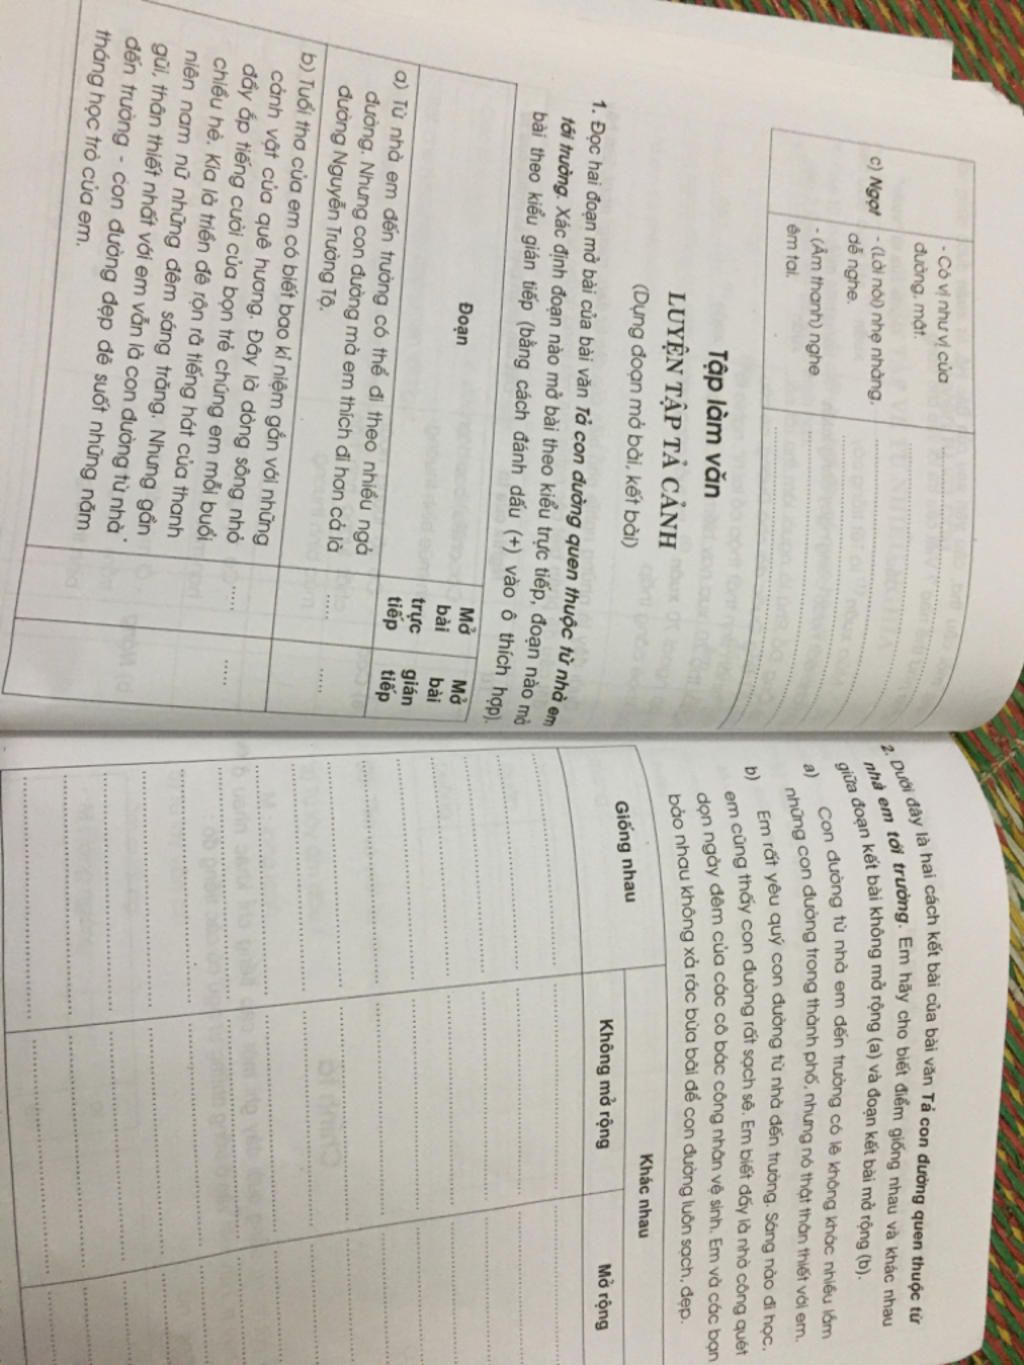 - Có vị như vị của
đường, mật.
c) Ngọt
- (Lời nói) nhẹ nhàng,
dễ nghe.
- (Âm thanh) nghe
êm tai.
Tập làm văn
LUYỆN TẬP TẢ CẢNH
(Dựng đoạn mở bài, kết bài)
1. Đọc hai đoạn mở bài của bài văn Tả con đường quen thuộc từ nhà em
tới trường. Xác định đoạn nào mở bài theo kiểu trực tiếp, đoạn nào mở
bài theo kiểu gián tiếp (bằng cách đánh dấu (+) vào ô thích hợp).
Đoạn
Mở
bài
trực
tiếp
Mở
bài
gián
tiếp
a) Từ nhà em đến trường có thể đi theo nhiều ngả
đường. Nhưng con đường mà em thích đi hơn cả là
đường Nguyễn Trường Tộ.
.....
.....
b) Tuổi thơ của em có biết bao kỉ niệm gắn với những
cảnh vật của quê hương. Đây là dòng sông nhỏ
đầy ắp tiếng cười của bọn trẻ chúng em mỗi buổi
chiều hè. Kia là triền đê rộn rã tiếng hát của thanh
niên nam nữ những đêm sáng trăng. Nhưng gần
gũi, thân thiết nhất với em vẫn là con đường từ nhà
đến trường - con đường đẹp đẽ suốt những năm
tháng học trò của em.
.....
.....
2. Dưới đây là hai cách kết bài của bài văn Tả con đường quen thuộc từ
nhà em tới trường. Em hãy cho biết điểm giống nhau và khác nhau
giữa đoạn kết bài không mở rộng (a) và đoạn kết bài mở rộng (b).
a) Con đường từ nhà em đến trường có lẽ không khác nhiều lắm
những con đường trong thành phố, nhưng nó thật thân thiết với em.
b) Em rất yêu quý con đường từ nhà đến trường. Sáng nào đi học,
em cũng thấy con đường rất sạch sẽ. Em biết đấy là nhờ công quét
dọn ngày đêm của các cô bác công nhân vệ sinh. Em và các bạn
bảo nhau không xả rác bừa bãi để con đường luôn sạch, đẹp.
Giống nhau
Khác nhau
Không mở rộng
Mở rộng